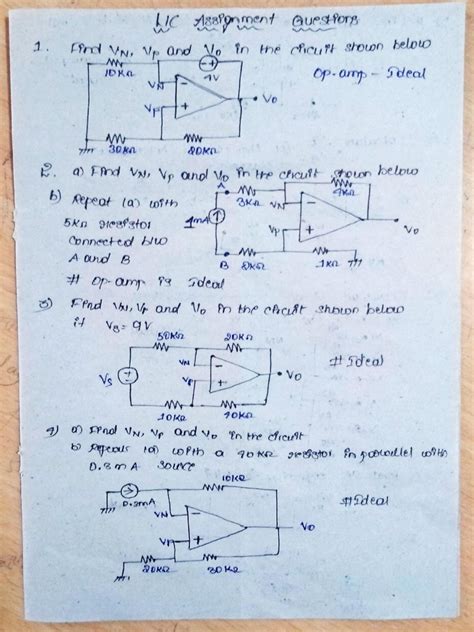 LIC Assignment Questions
1. Find VN, VP and Vo in the circuit shown below
10KΩ
4V
Op-amp - Ideal
VN
VP
Vo
30KΩ
20KΩ
2. a) Find VN, VP and Vo in the circuit shown below
b) Repeat (a) with
5KΩ resistor
connected b/w
A and B
# Op-amp is Ideal
A
3KΩ
4KΩ
VN
1mA
VP
Vo
B
2KΩ
1KΩ
3) Find VN, VP and Vo in the circuit shown below
if VS = 9V
50KΩ
20KΩ
# Ideal
VN
VS
VP
Vo
10KΩ
40KΩ
4) a) Find VN, VP and Vo in the circuit
b) Repeat (a) with a 40KΩ resistor in parallel with
0.3mA source
10KΩ
# Ideal
0.3mA
VN
Vo
VP
20KΩ
30KΩ